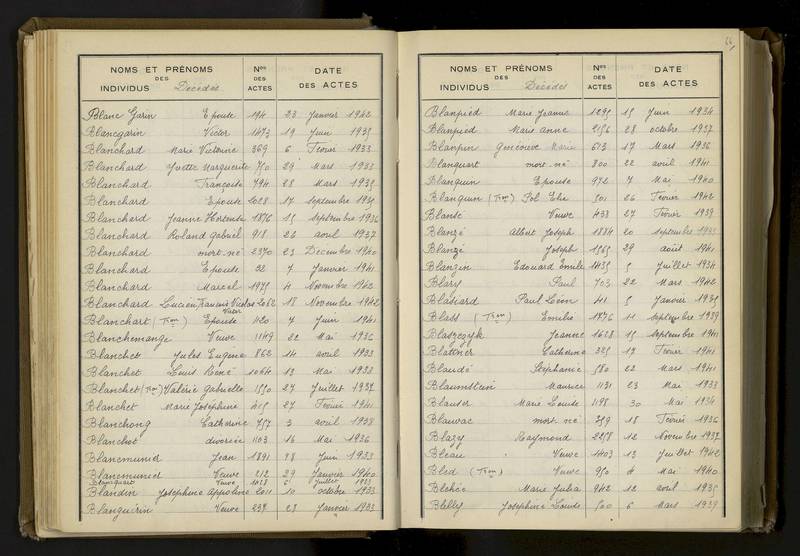 NOMS ET PRÉNOMS DES INDIVIDUS Décédés Nos DES ACTES DATE DES ACTES
Blanc Garin Epouse 194 23 Janvier 1942
Blancgarin Victor 1473 19 Juin 1935
Blanchard Marie Victorine 369 6 Février 1933
Blanchard Yvette Marguerite 750 29 Mars 1933
Blanchard Françoise 794 28 Mars 1935
Blanchard Epouse 2028 17 Septembre 1935
Blanchard Jeanne Hortense 1876 15 Septembre 1936
Blanchard Roland Gabriel 918 26 avril 1937
Blanchard mort-né 2370 23 Décembre 1940
Blanchard Epouse 32 7 Janvier 1941
Blanchard Marcel 1975 4 Novembre 1942
Blanchard Lucien François Nicolas 2062 18 Novembre 1942
Victor
Blanchart (Tran) Epouse 1120 7 Juin 1941
Blanchemange Veuve 1149 22 Mai 1936
Blanchet Jules Eugène 862 14 avril 1933
Blanchet Louis René 1064 13 Mai 1938
Blanchet (Tran) Valérie Gabrielle 1550 27 Juillet 1937
Blanchet Marie Joséphine 415 27 Février 1941
Blanchong Catherine 757 3 avril 1938
Blanchot divorcée 1103 16 Mai 1936
Blancmunier Jean 1891 28 Juin 1933
Blancmunier Veuve 212 29 Janvier 1940
Blancquart Veuve 1028 6 Juillet 1933
Blandin Joséphine Appoline 2011 10 octobre 1933
Blanguérin Veuve 237 28 Janvier 1933
66
NOMS ET PRÉNOMS DES INDIVIDUS Décédés Nos DES ACTES DATE DES ACTES
Blanpied Marie Jeanne 1295 15 Juin 1934
Blanpied Marie anne 2156 28 octobre 1937
Blanpin Geneviève Marie 613 17 Mars 1936
Blanquart mort-né 800 22 avril 1941
Blanquin Epouse 972 7 Mai 1940
Blanquin (Tran) Pol Elie 501 26 Février 1942
Blansé Veuve 438 27 Février 1939
Blanzé Albert Joseph 1834 20 septembre 1933
Blanzé Joseph 1565 29 août 1941
Blanzin Edouard Emile 1435 5 Juillet 1934
Blary Paul 703 22 Mars 1942
Blasiard Paul Léon 41 5 Janvier 1935
Blass (Tran) Emilie 1876 11 Septembre 1939
Blaszczyk Jeanne 1628 15 Septembre 1941
Blattner Catherine 325 17 Février 1941
Blaudé Stéphanie 580 22 Mars 1941
Blaumstein Maurice 1131 23 Mai 1933
Blauser Marie Louise 1198 30 Mai 1934
Blauvac mort-né 359 18 Février 1936
Blazy Raymond 2258 12 Novembre 1937
Bleau Veuve 1403 13 Juillet 1942
Bled (Tran) Veuve 950 4 Mai 1940
Bléhée Marie Julia 942 12 avril 1935
Blelly Joséphine Louise 500 6 Mars 1939